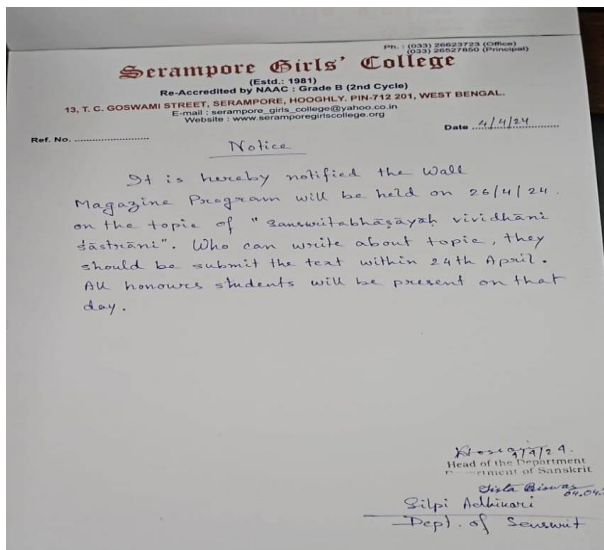 Ph. : (033) 26623723 (Office)
(033) 26527850 (Principal)
Serampore Girls' College
(Estd.: 1981)
Re-Accredited by NAAC : Grade B (2nd Cycle)
13, T. C. GOSWAMI STREET, SERAMPORE, HOOGHLY. PIN-712 201, WEST BENGAL.
E-mail : serampore_girls_college@yahoo.co.in
Website : www.seramporegirlscollege.org
Ref. No. ........................ Date 4/4/24
Notice
It is hereby notified the Wall
Magazine Program will be held on 26/4/24.
on the topic of "Sanskritabhāṣāyāḥ vividhāni
śāstrāni". Who can write about topic, they
should be submit the text within 24th April.
All honours students will be present on that
day.
Head of the Department
Department of Sanskrit
Biswas
04.04.
Silpi Adhikari
Dept. of Sanskrit